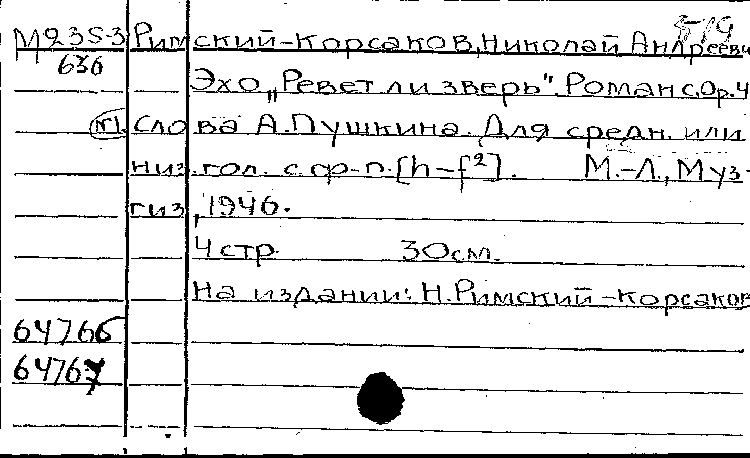 5-19
М235-3 Римский-Корсаков, Николай Андреевич
636
Эхо „Ревет ли зверь". Романс. Ор.4
№1. Слова А.Пушкина. Для средн. или
низ. гол. с ф-п. [h-f²]. М.-Л., Муз-
гиз, 1946.
4 стр. 30 см.
На издании: Н.Римский-Корсаков
64766
64767